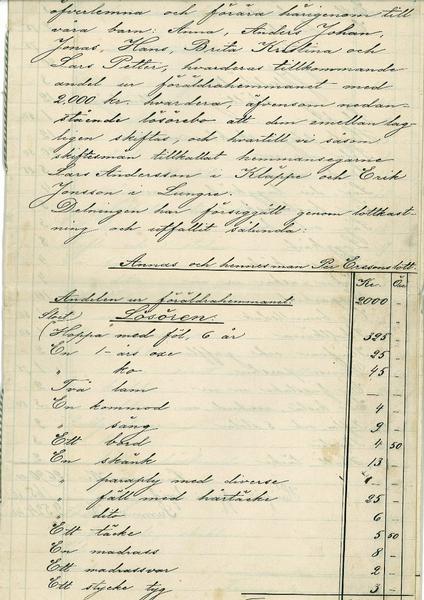 öfverlemna och förära härigenom till
våra barn: Anna, Anders Johan,
Jonas, Hans, Brita Kristina och
Lars Petter, hvarderas tillkommande
andel ur föräldrahemmanet med
2,000 kr. hvardera, äfvensom nedan-
stående lösörebo att dem emellan lag-
ligen skiftas, och hvartill vi såsom
skiftesmän tillkallat hemmansegarne
Lars Andersson i Klappe och Erik
Jonsson i Lungre.
Delningen har försiggått genom lottkast-
ning och utfallit sålunda:
Annas och hennes man Per Erssons lott.
Kr. Öre
Andelen ur föräldrahemmanet 2000
Stort Lösören.
(Hoppa med föl, 6 år 325 -
En 1-års oxe 25 -
" ko 45 -
Två lam - -
En kommod 4 -
" säng 9 -
Ett bord 4 50
En skänk 13 -
" paraply med diverse -
" fäll med hårtäcke 25 -
" dito 6 -
Ett täcke 5 50
En madrass 8 -
Ett madrassvar 2 -
Ett stycke tyg 3 -